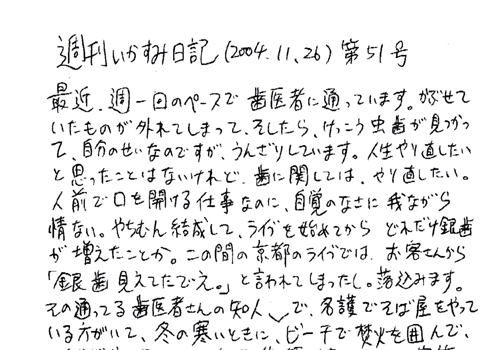 週刊いかすみ日記(2004.11.26)第51号
最近、週一回のペースで歯医者に通っています。かぶせて
いたものが外れてしまって、そしたら、けっこう虫歯が見つかっ
て、自分のせいなのですが、うんざりしています。人生やり直したい
と思ったことはないけれど、歯に関しては、やり直したい。
人前で口を開ける仕事なのに、自覚のなさに我ながら
情ない。やちむん結成して、ライブを始めてから どれだけ銀歯
が増えたことか。この間の京都のライブでは、お客さんから
「銀歯見えてたでえ。」と言われてしまったし。落込みます。
その通ってる歯医者さんの知人で、名護でそば屋をやって
いる方がいて、冬の寒いときに、ビーチで焚火を囲んで、